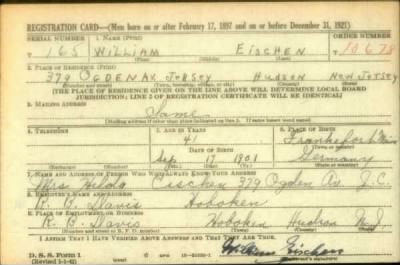 REGISTRATION CARD—(Men born on or after February 17, 1897 and on or before December 31, 1921)
SERIAL NUMBER 1. NAME (Print) ORDER NUMBER
165 WILLIAM EISCHEN 10678
(First) (Middle) (Last)
2. PLACE OF RESIDENCE (Print)
379 OGDEN AV. JERSEY HUDSON NEW JERSEY
(Number and street) (Town, township, village, or city) (County) (State)
[THE PLACE OF RESIDENCE GIVEN ON THE LINE ABOVE WILL DETERMINE LOCAL BOARD
JURISDICTION; LINE 2 OF REGISTRATION CERTIFICATE WILL BE IDENTICAL]
3. MAILING ADDRESS
Same
[Mailing address if other than place indicated on line 2. If same insert word same]
4. TELEPHONE 5. AGE IN YEARS 6. PLACE OF BIRTH
41 Frankfort
DATE OF BIRTH (Town or county)
Sep 17 1901 Germany
(Exchange) (Number) (Mo.) (Day) (Yr.) (State or country)
7. NAME AND ADDRESS OF PERSON WHO WILL ALWAYS KNOW YOUR ADDRESS
Mrs Hilda Eischen 379 Ogden Av. J.C.
8. EMPLOYER'S NAME AND ADDRESS
R. B. Davis Hoboken
9. PLACE OF EMPLOYMENT OR BUSINESS
R. B. Davis Hoboken Hudson N.J.
(Number and street or R. F. D. number) (Town) (County) (State)
I AFFIRM THAT I HAVE VERIFIED ABOVE ANSWERS AND THAT THEY ARE TRUE.
D. S. S. Form 1
(Revised 1-1-42) (over) William Eischen